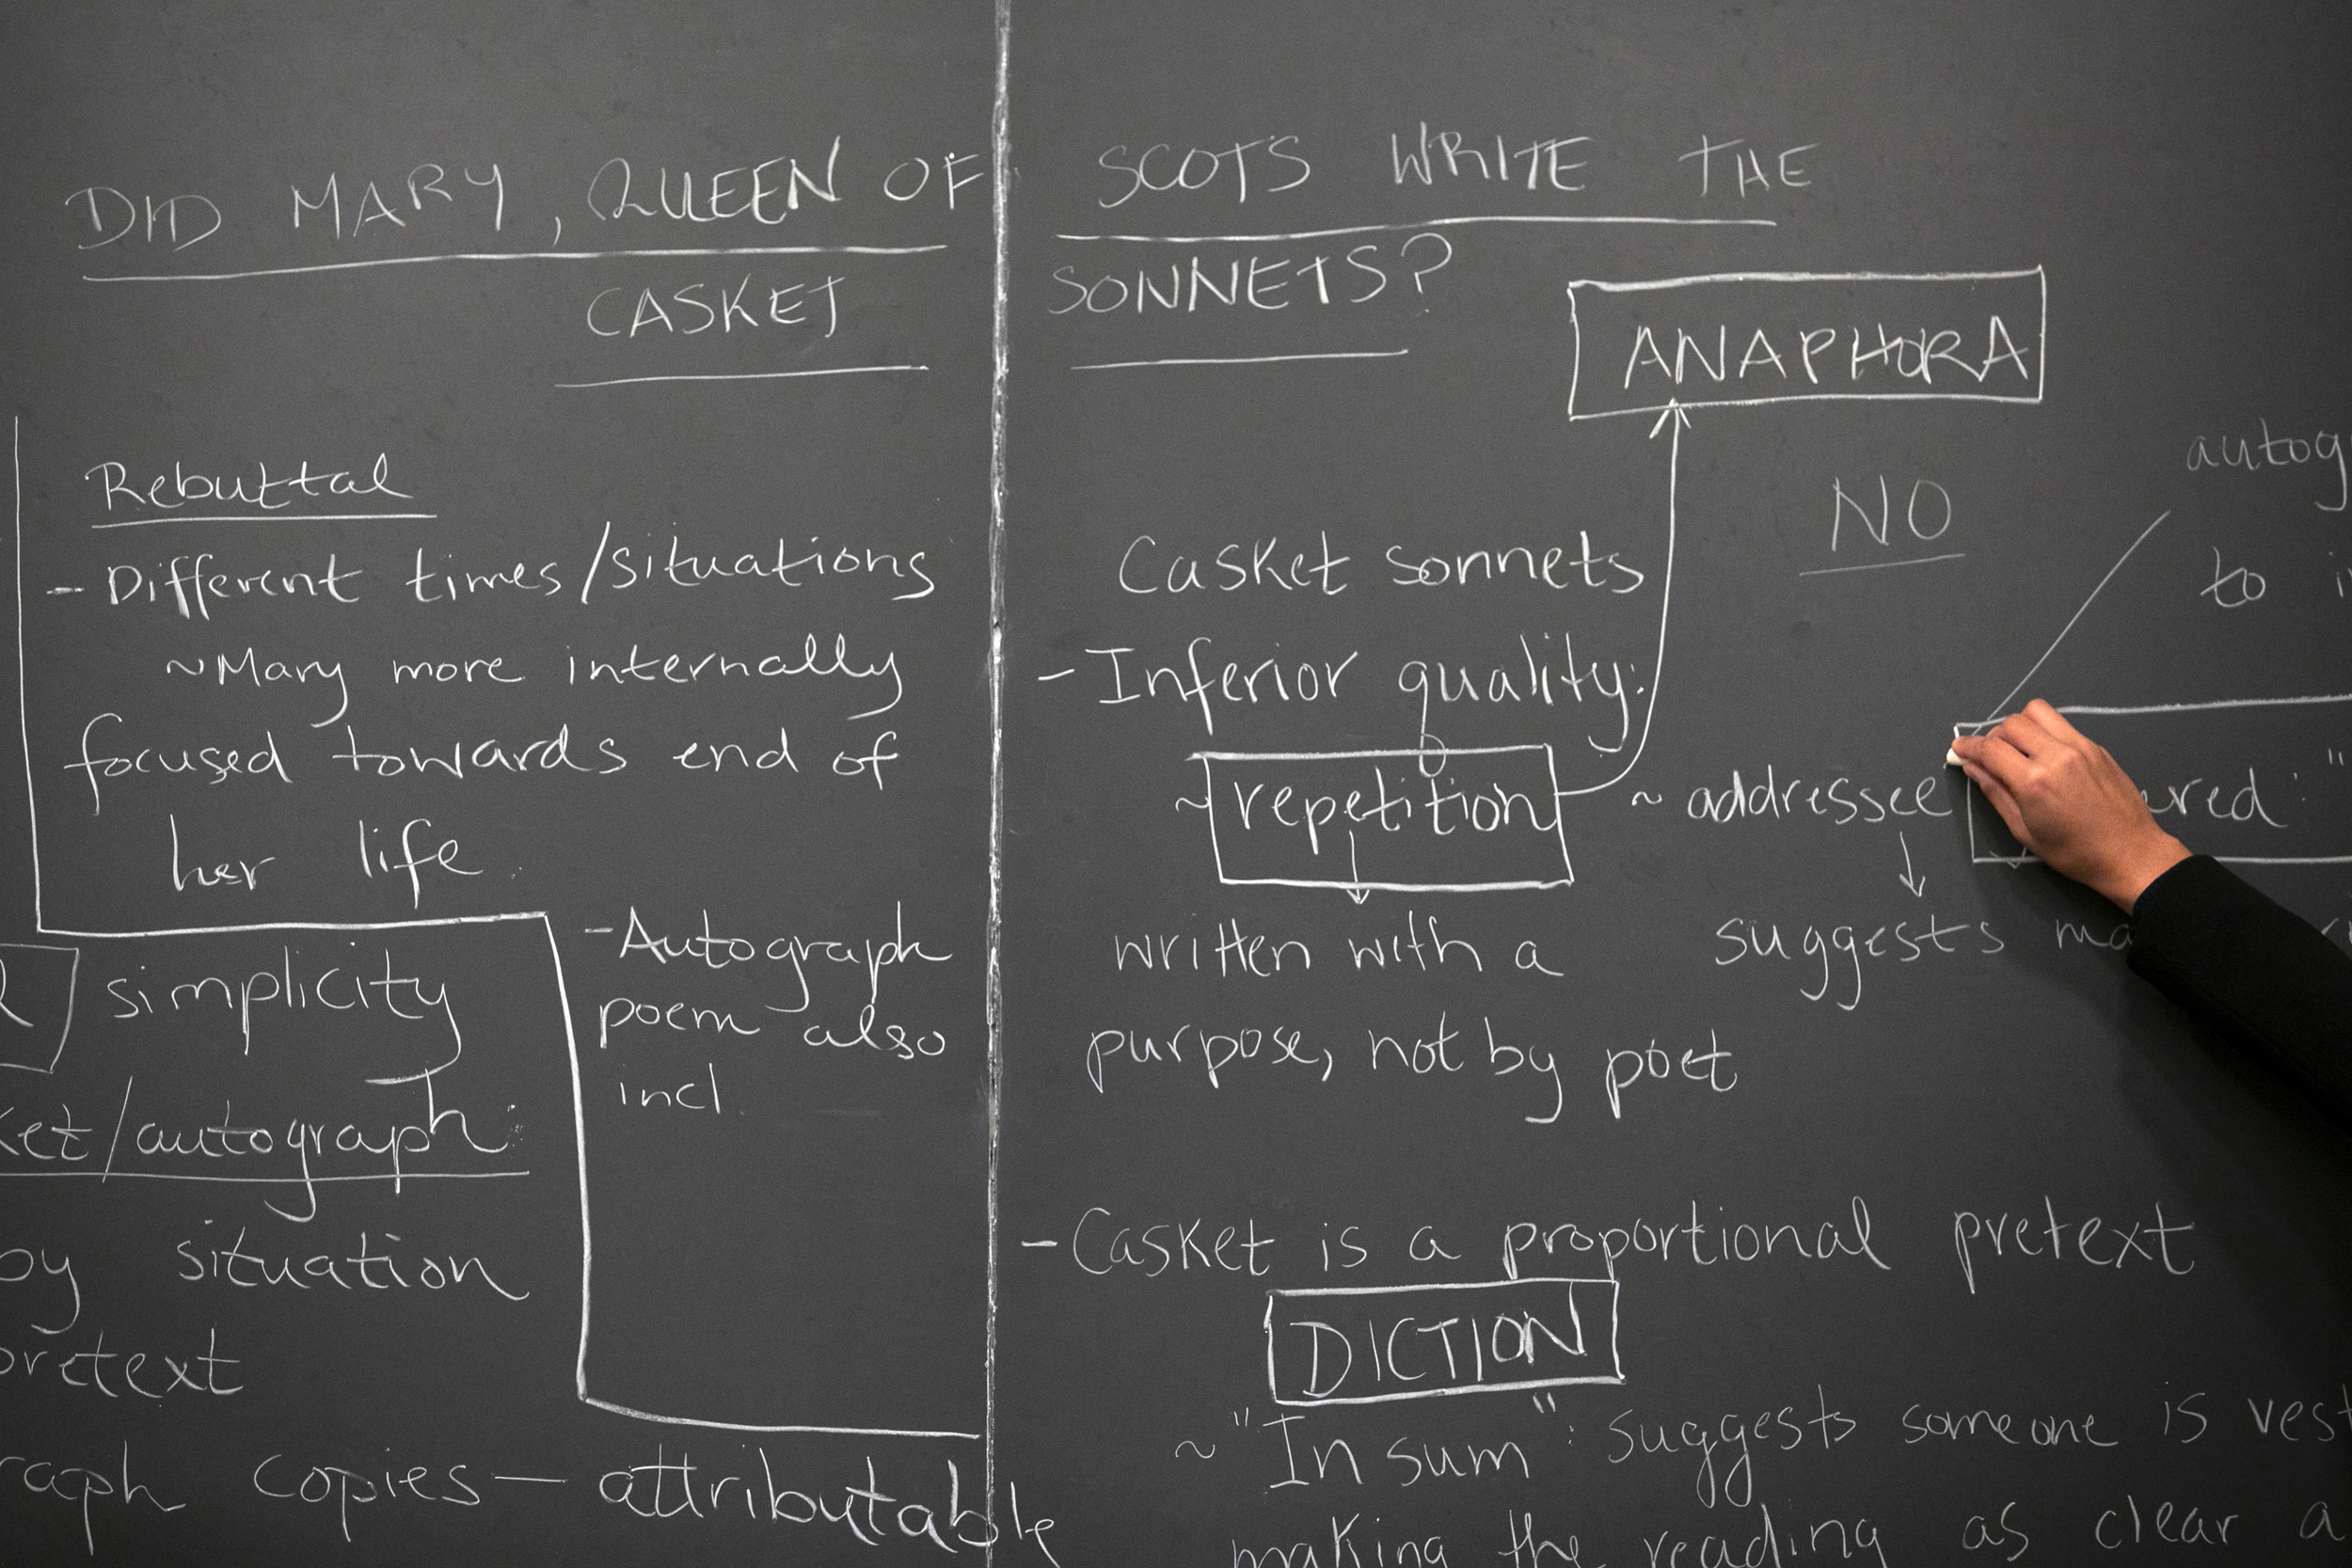 DID MARY, QUEEN OF SCOTS WRITE THE
CASKET SONNETS?
Rebuttal
- Different times/situations
~Mary more internally
focused towards end of
her life
simplicity
/autograph:
by situation
pretext
copies — attributable
-Autograph
poem also
incl.
ANAPHORA
NO
Casket sonnets
- Inferior quality:
~ repetition
written with a
purpose, not by poet
~ addressee
suggests
to
- Casket is a proportional pretext
DICTION
~ "In sum": suggests someone is
making the reading as clear a